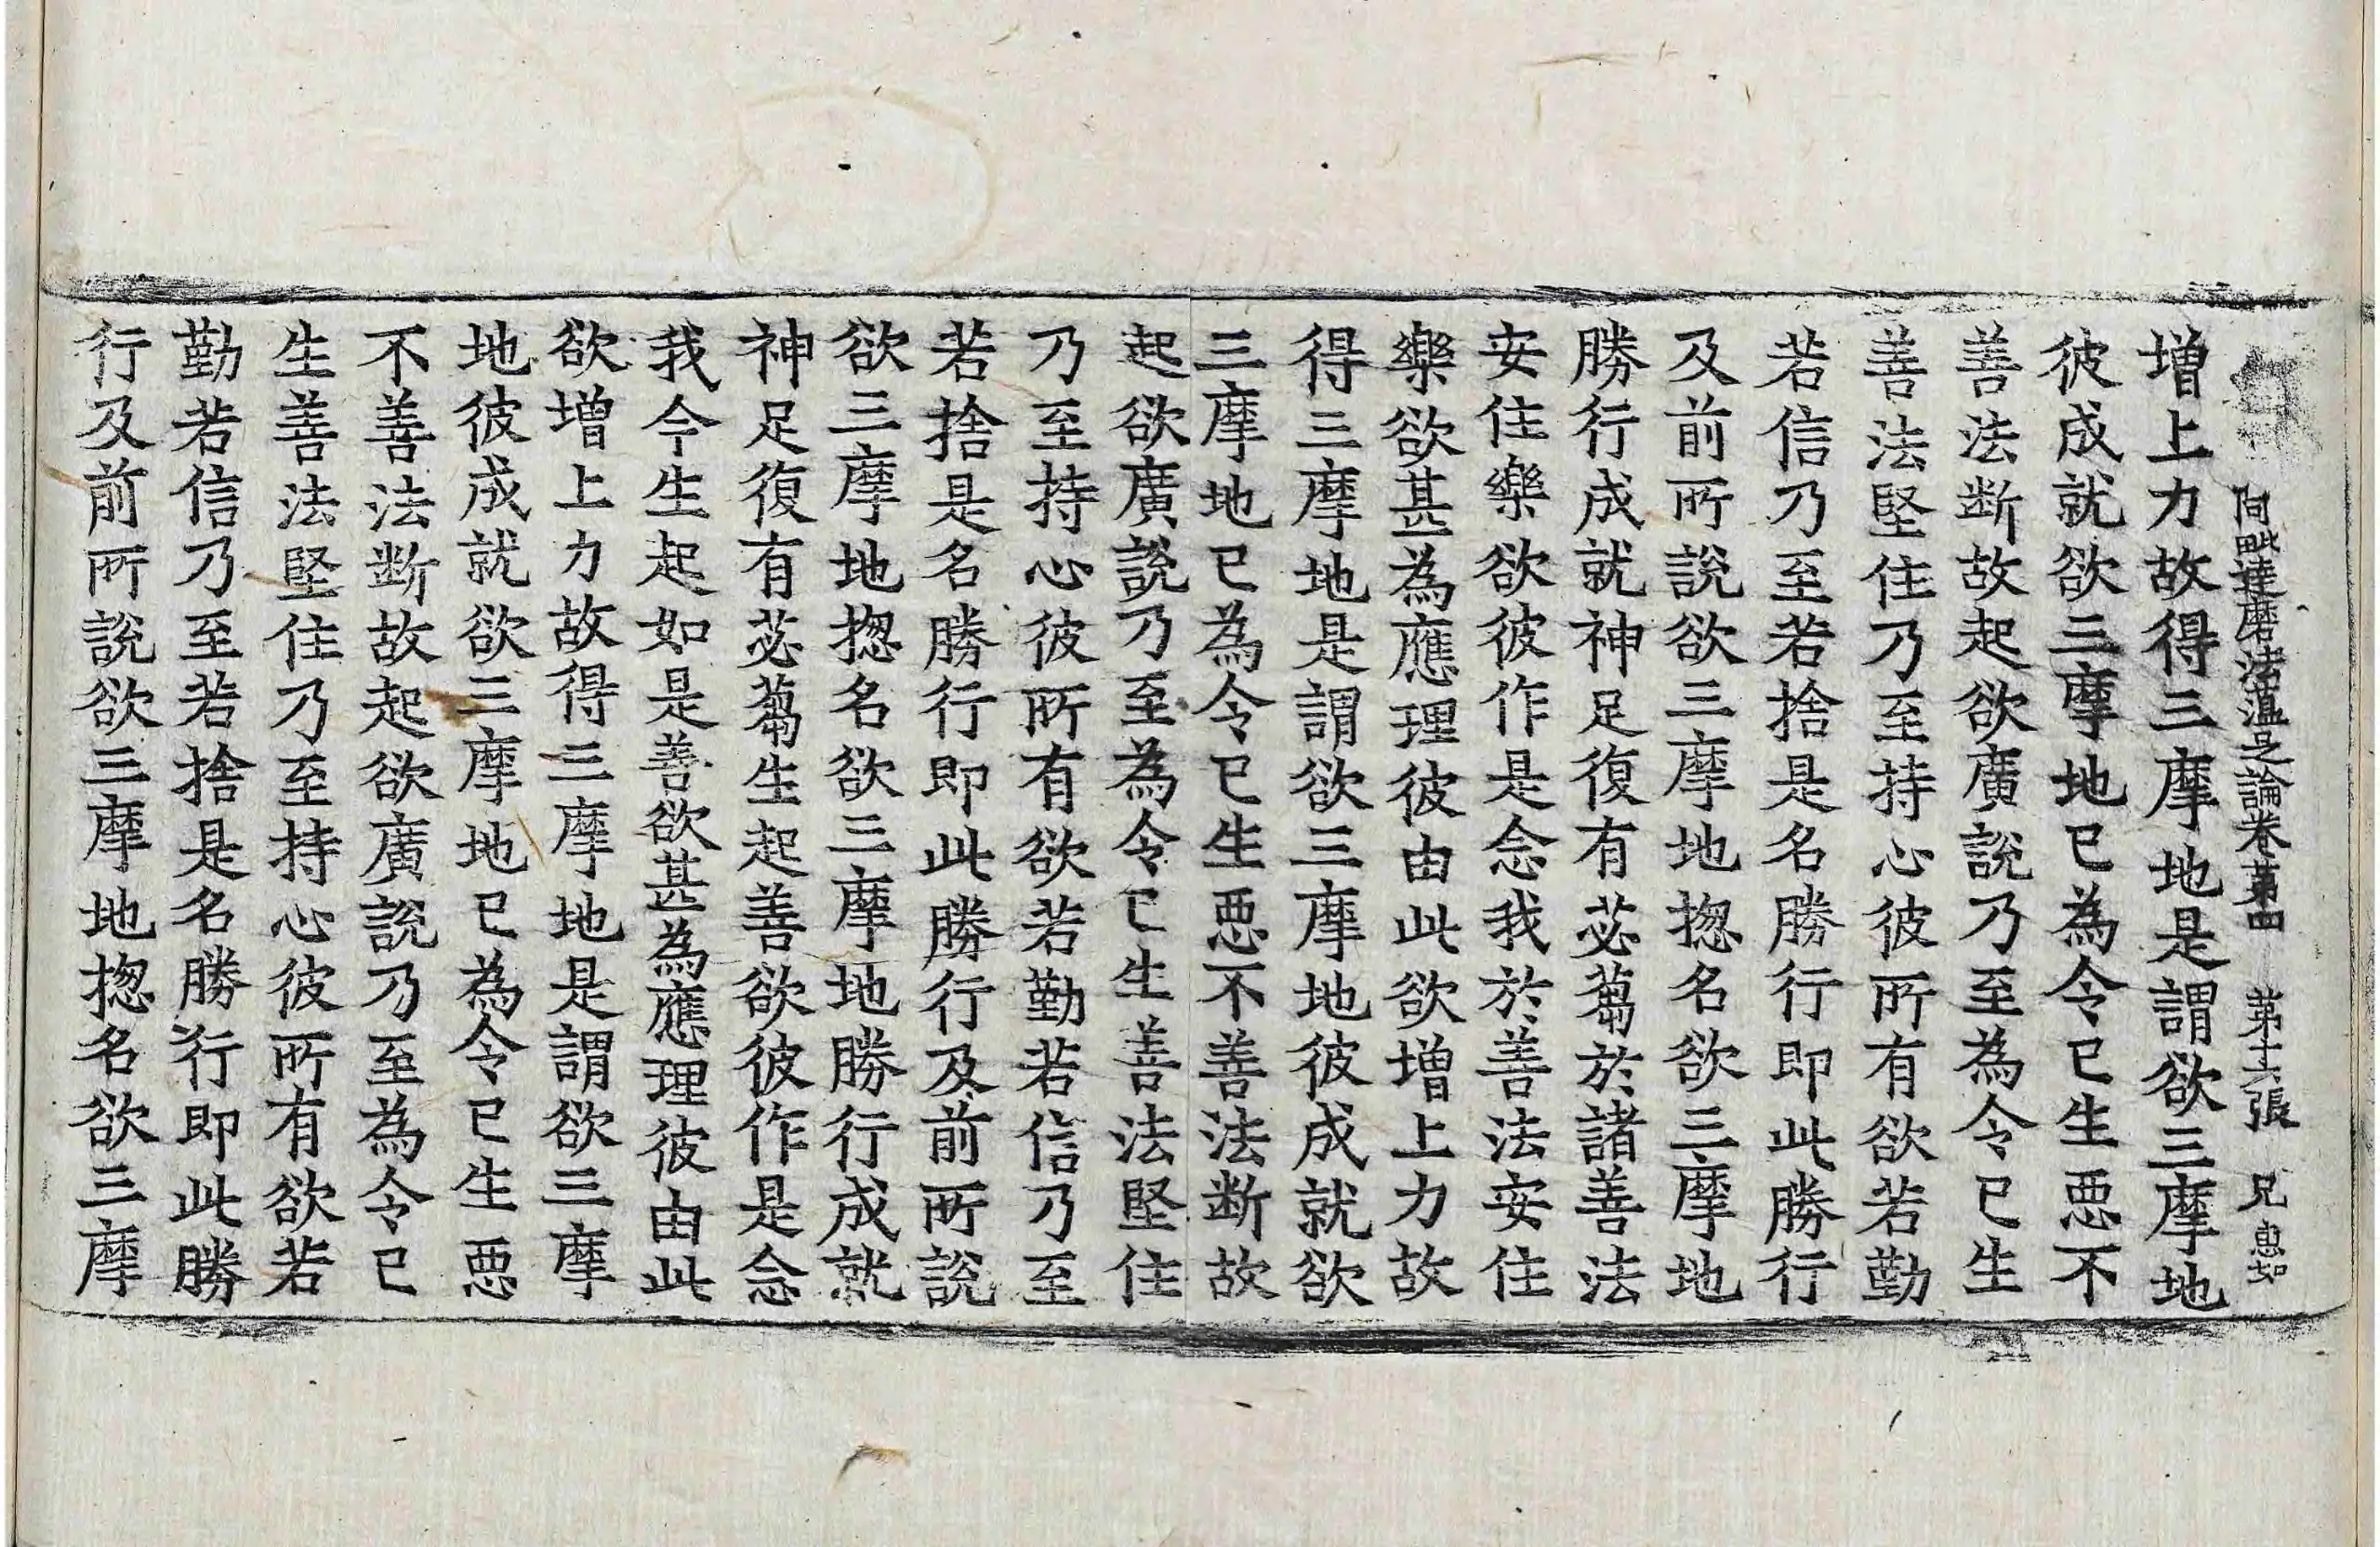 阿毗達磨法蘊足論卷第四　第十六張　兄　惠如
增上力故得三摩地是謂欲三摩地
彼成就欲三摩地已為令已生惡不
善法斷故起欲廣說乃至為令已生
善法堅住乃至持心彼所有欲若勤
若信乃至若捨是名勝行即此勝行
及前所說欲三摩地揔名欲三摩地
勝行成就神足復有苾蒭於諸善法
安住樂欲彼作是念我於善法安住
樂欲甚為應理彼由此欲增上力故
得三摩地是謂欲三摩地彼成就欲
三摩地已為令已生惡不善法斷故
起欲廣說乃至為令已生善法堅住
乃至持心彼所有欲若勤若信乃至
若捨是名勝行即此勝行及前所說
欲三摩地揔名欲三摩地勝行成就
神足復有苾蒭生起善欲彼作是念
我今生起如是善欲甚為應理彼由此
欲增上力故得三摩地是謂欲三摩
地彼成就欲三摩地已為令已生惡
不善法斷故起欲廣說乃至為令已
生善法堅住乃至持心彼所有欲若
勤若信乃至若捨是名勝行即此勝
行及前所說欲三摩地揔名欲三摩